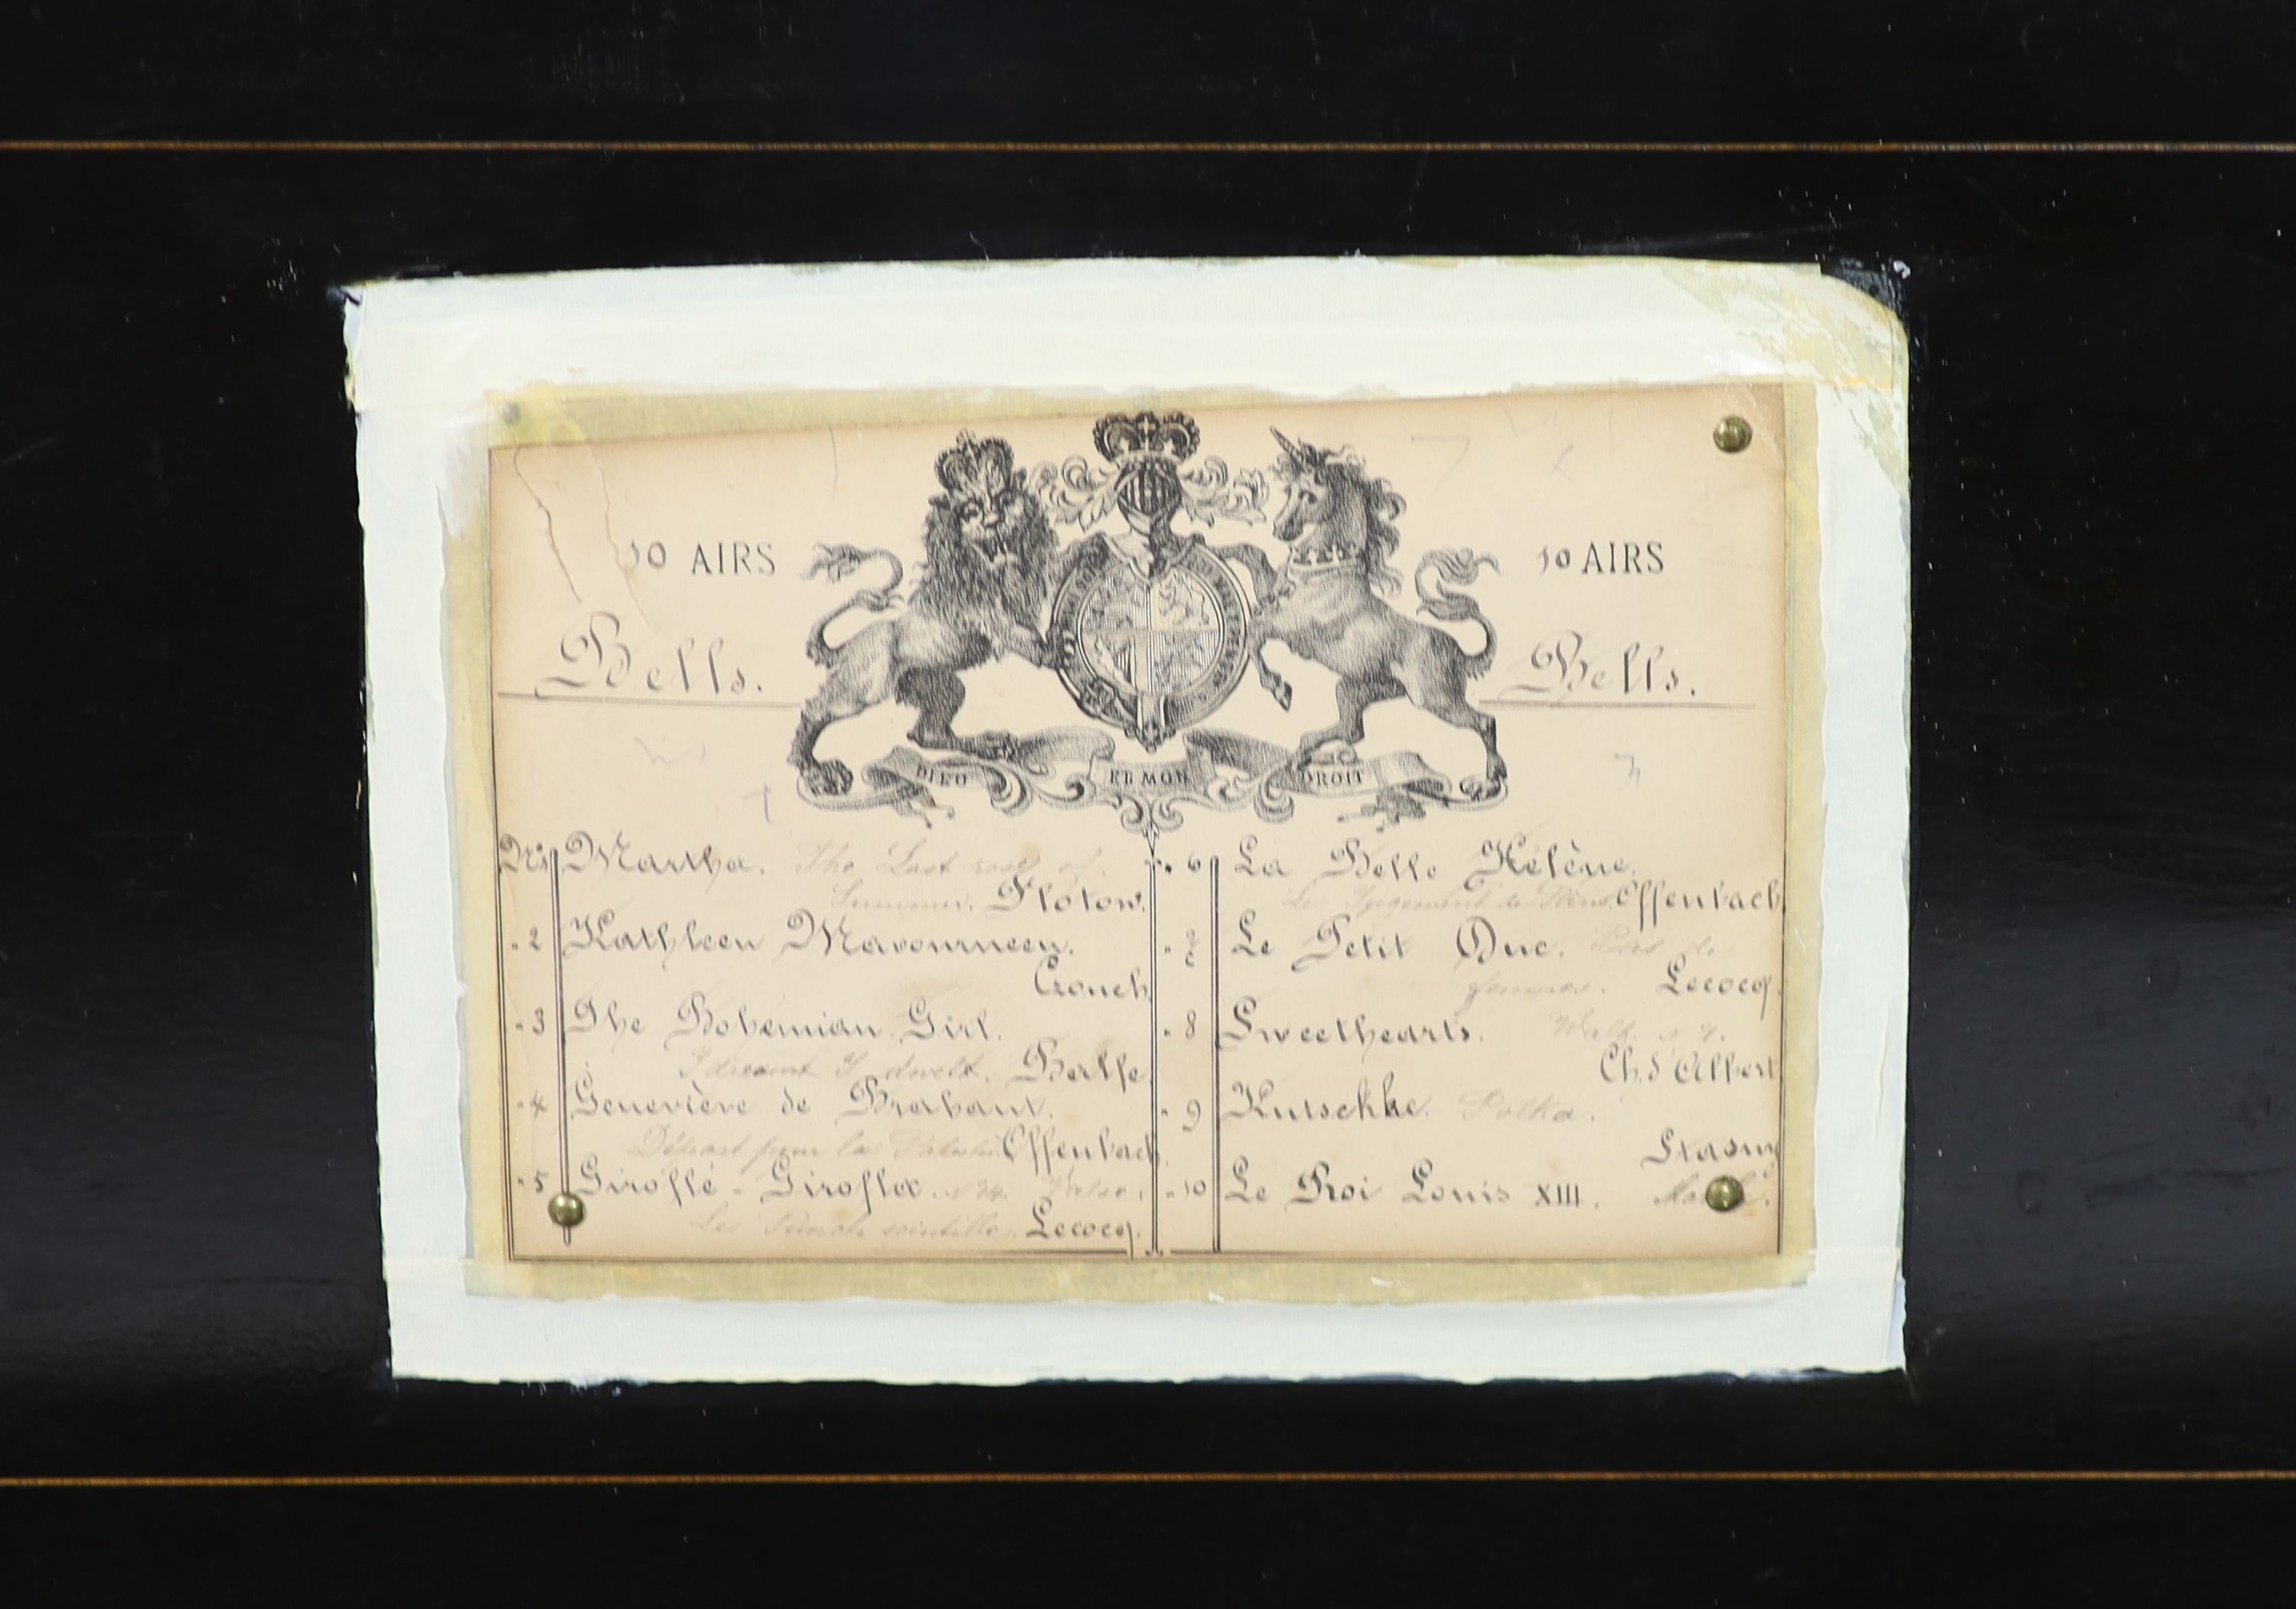 10 AIRS
10 AIRS
Bells.
Bells.
DIEU ET MON DROIT
No 1 Martha. The Last rose of
Summer. Flotow.
" 2 Kathleen Mavourneen.
Crouch.
" 3 The Bohemian Girl.
I dreamt I dwelt. Balfe.
" 4 Geneviève de Brabant.
Départ pour la Offenbach.
" 5 Giroflé-Girofla.
Le Punch scintille. Lecocq.
" 6 La Belle Hélène.
Le Jugement de Pâris. Offenbach.
" 7 Le Petit Duc. Pas de
femmes. Lecocq.
" 8 Sweethearts.
Ch. d'Albert
" 9 Kutschke. Polka.
" 10 Le Roi Louis XIII.